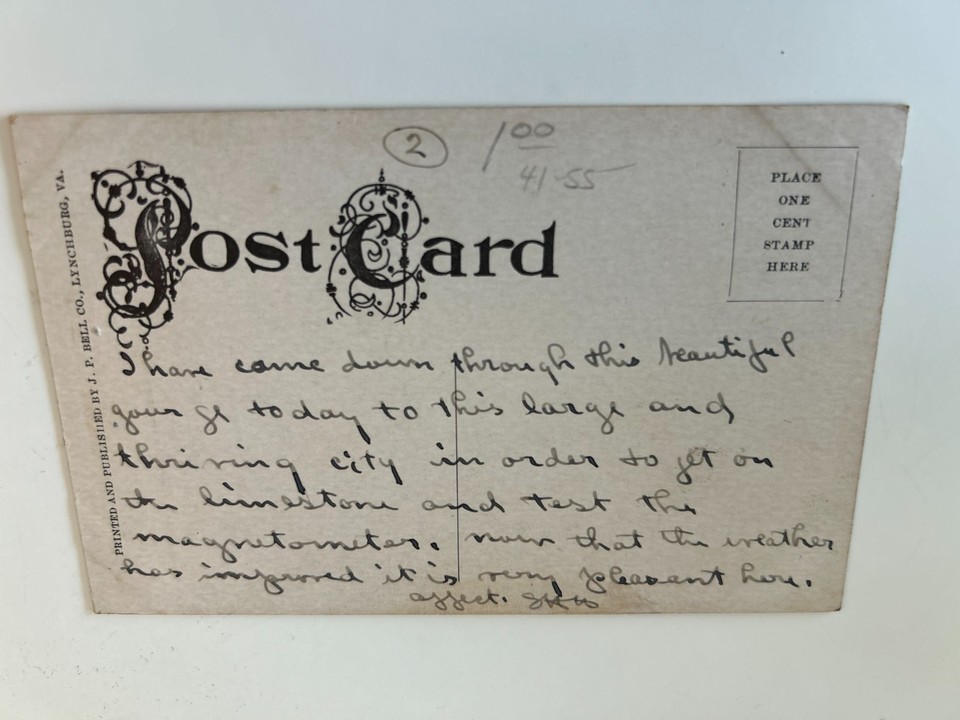 2
1 00
41-55
Post Card
PLACE
ONE
CENT
STAMP
HERE
PRINTED AND PUBLISHED BY J. P. BELL CO., LYNCHBURG, VA.
I have come down through this beautiful
gourge today to this large and
thriving city in order to get on
the limestone and test the
magnetometer. now that the weather
has improved it is very pleasant here.
affect.